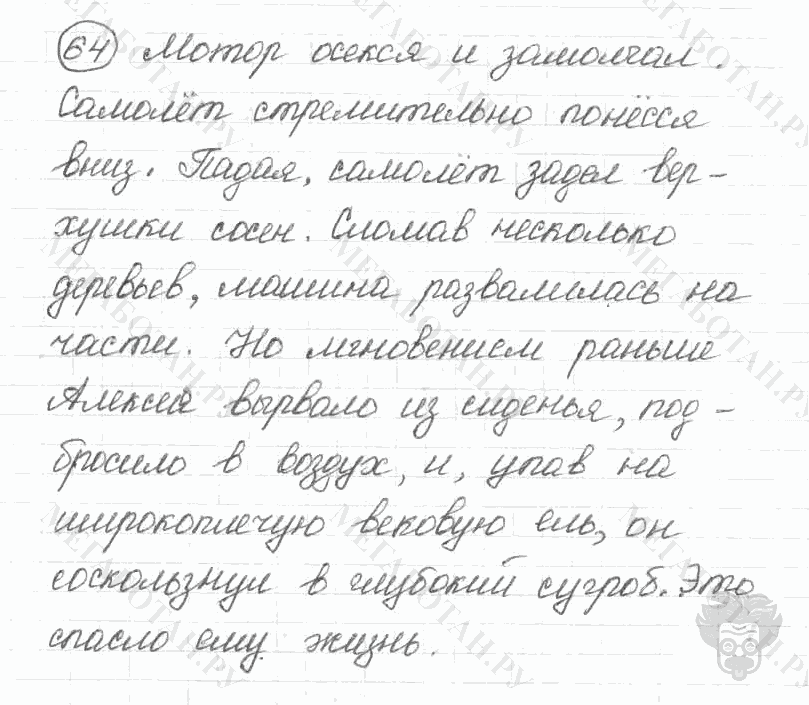 64 Мотор осекся и замолчал.
Самолёт стремительно понёсся
вниз. Падая, самолёт задел вер-
хушки сосен. Сломав несколько
деревьев, машина развалилась на
части. Но мгновением раньше
Алексея вырвало из сиденья, под-
бросило в воздух, и, упав на
широкоплечую вековую ель, он
соскользнул в глубокий сугроб. Это
спасло ему жизнь.
МЕГАБОТАН.РУ